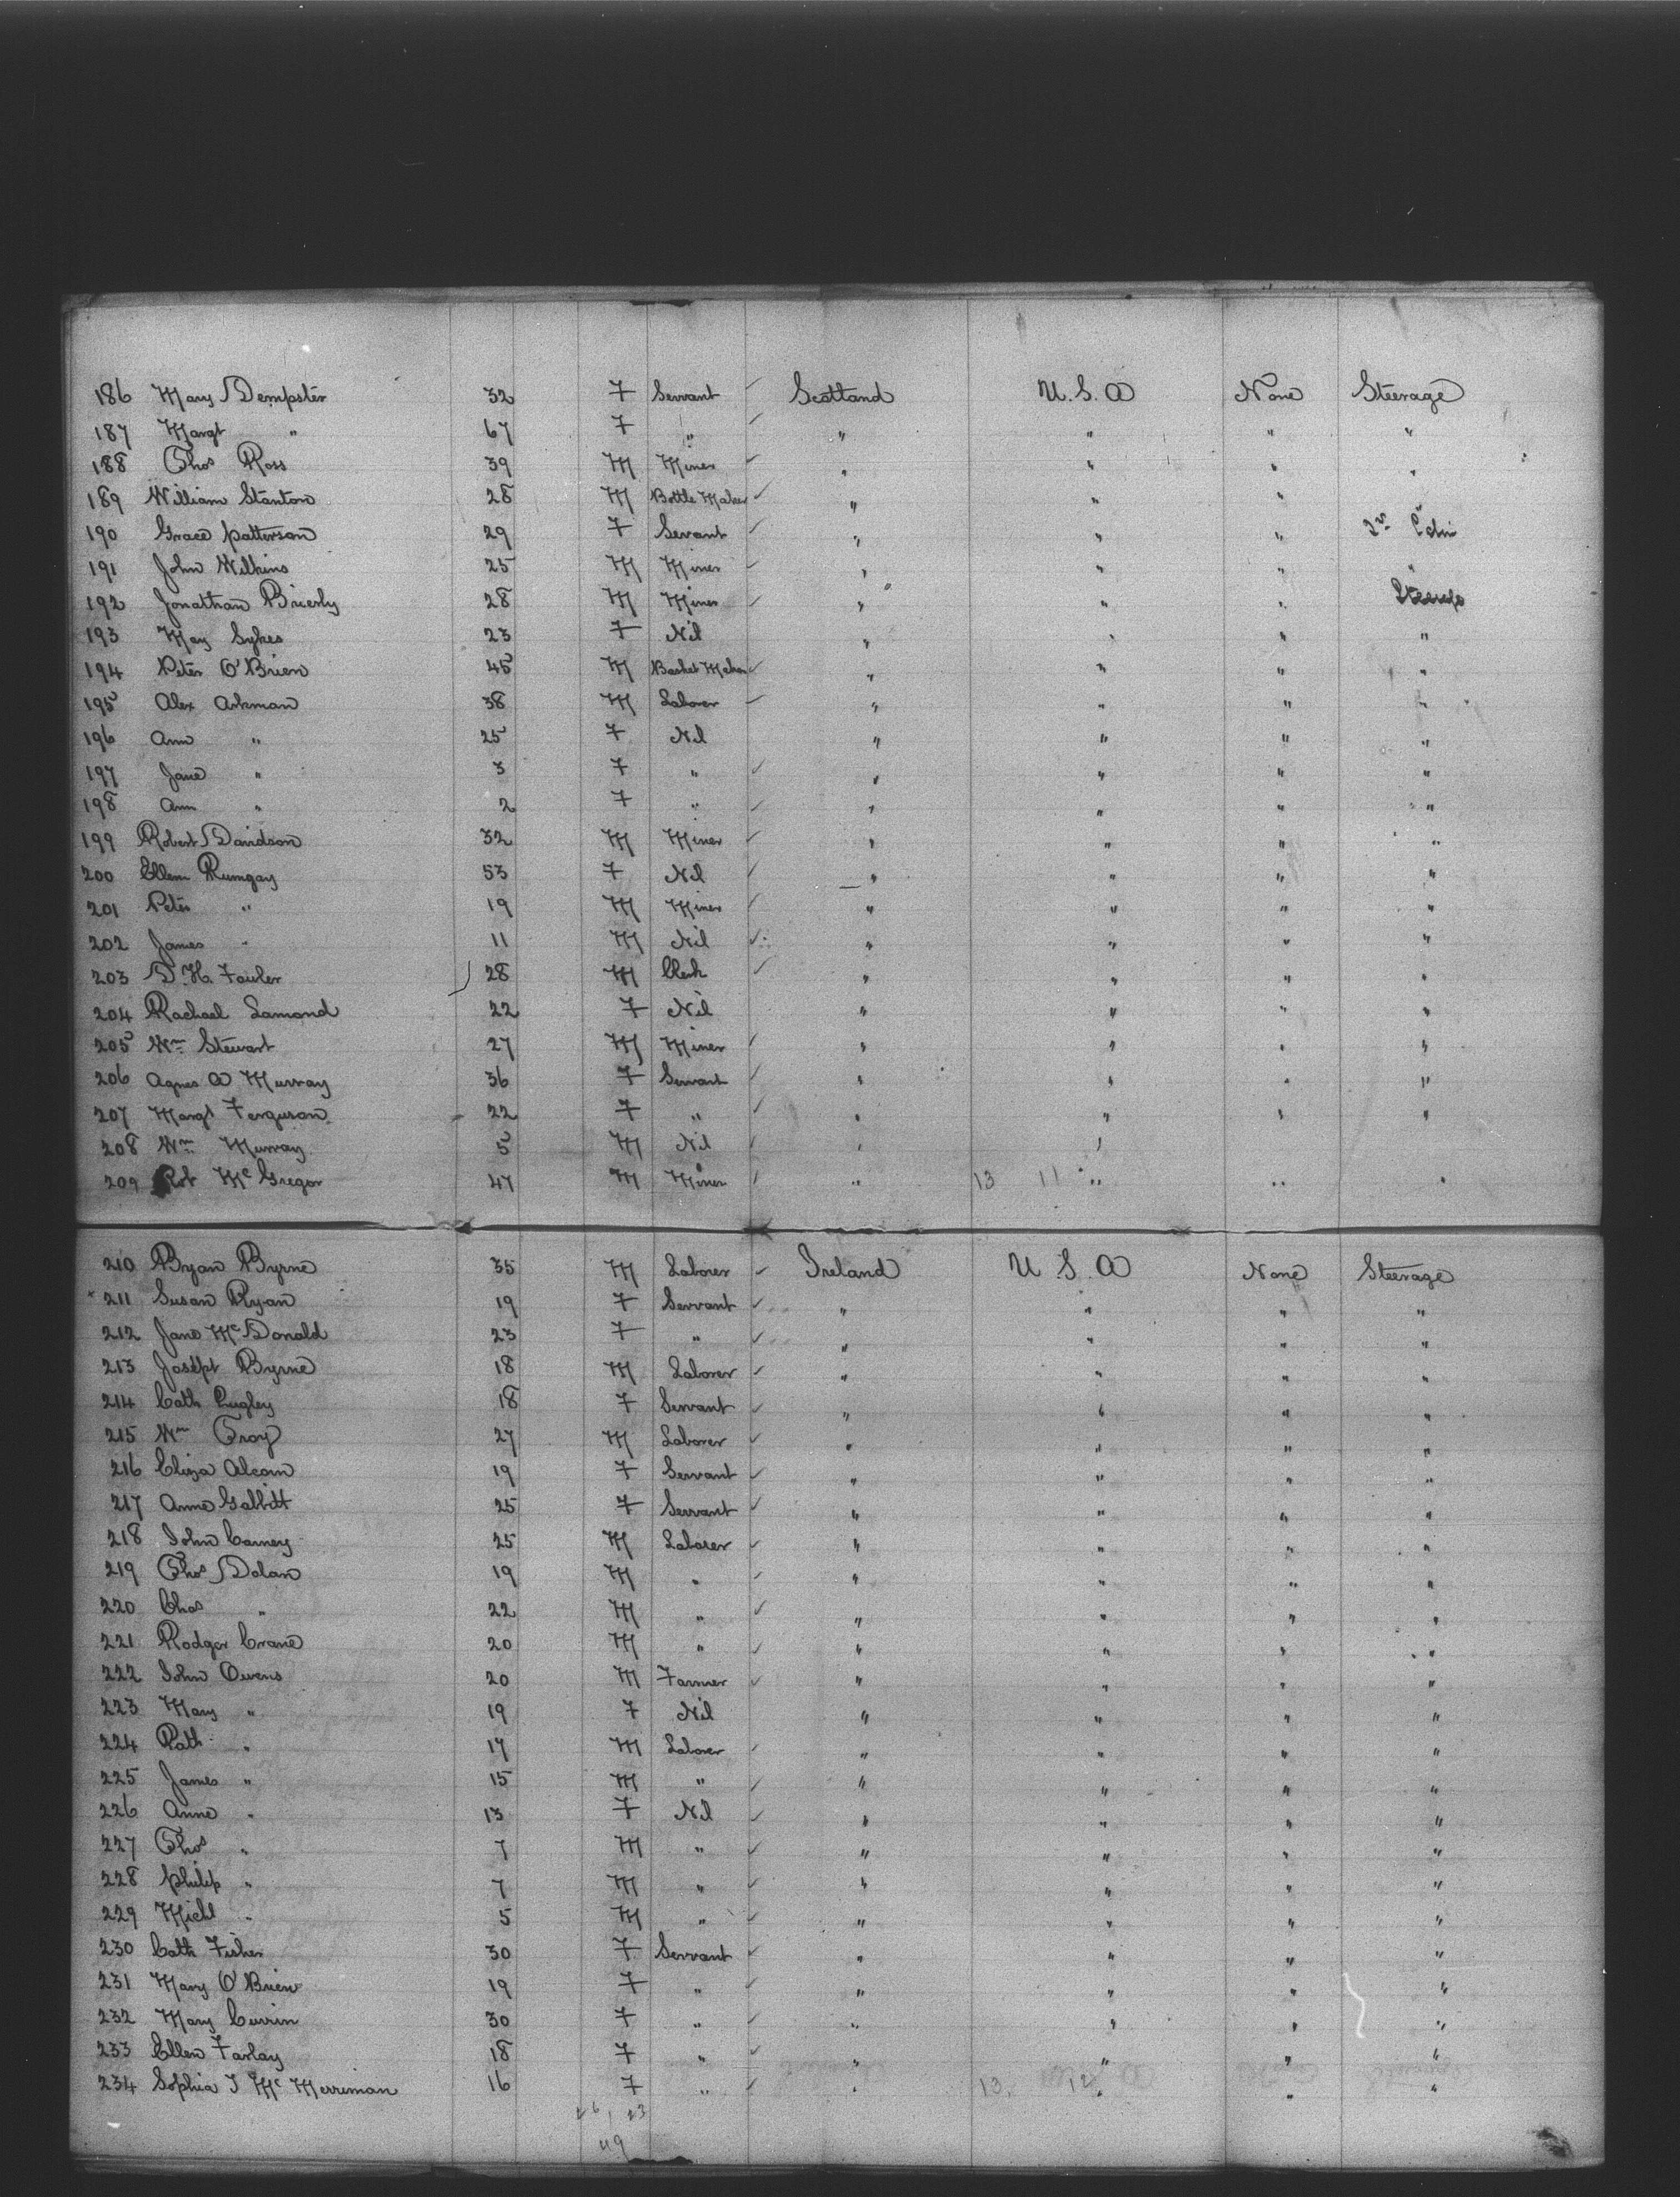 186 Mary Dempster 32 F Servant ✓ Scotland U.S.A None Steerage
187 Margt " 67 F " ✓ " " " "
188 Thos Ross 39 M Miner ✓ " " " "
189 William Stanton 28 M Bottle Maker ✓ " " " "
190 Grace Patterson 29 F Servant ✓ " " "
191 John Wilkins 25 M Miner ✓ " " " "
192 Jonathan Brierly 28 M Miner ✓ " " " Steerage
193 May Sykes 23 F Nil " " " "
194 Peter O'Brien 45 M Basket Maker ✓ " " " "
195 Alex Arkman 38 M Laborer ✓ " " " "
196 Ann " 25 F Nil " " " "
197 Jane " 3 F " ✓ " " " "
198 Ann " 2 F " ✓ " " " "
199 Robert Davidson 32 M Miner ✓ " " " "
200 Ellen Rumgay 53 F Nil ✓ " " " "
201 Peter " 19 M Miner ✓ " " " "
202 James " 11 M Nil ✓ " " " "
203 D. H. Fowler 28 M Clerk ✓ " " " "
204 Rachael Lamond 22 F Nil " " " "
205 Wm Stewart 27 M Miner ✓ " " " "
206 Agnes A Murray 36 F Servant ✓ " " " "
207 Margt Ferguson 22 F " ✓ " " " "
208 Wm Murray 5 M Nil ✓ " "
209 Rob McGregor 47 M Miner ✓ " 13 11 " " "
210 Bryan Byrne 35 M Laborer ✓ Ireland U.S.A None Steerage
211 Susan Ryan 19 F Servant ✓ " " " "
212 Jane McDonald 23 F " ✓ " " " "
213 Joseph Byrne 18 M Laborer ✓ " " " "
214 Cath Pugley 18 F Servant ✓ " " " "
215 Wm Troy 27 M Laborer ✓ " " " "
216 Eliza Alcorn 19 F Servant ✓ " " " "
217 Anne Gabbitt 25 F Servant ✓ " " " "
218 John Carney 25 M Laborer ✓ " " " "
219 Thos Dolan 19 M " ✓ " " " "
220 Chas " 22 M " ✓ " " " "
221 Rodger Crane 20 M " ✓ " " " "
222 John Owens 20 M Farmer ✓ " " " "
223 Mary " 19 F Nil " " " "
224 Path " 17 M Laborer ✓ " " " "
225 James " 15 M " ✓ " " " "
226 Anne " 13 F Nil ✓ " " " "
227 Thos " 7 M " ✓ " " " "
228 Philip " 7 M " ✓ " " " "
229 Michl " 5 M " ✓ " " " "
230 Cath Fisher 30 F Servant ✓ " " " "
231 Mary O'Brien 19 F " ✓ " " " "
232 Mary Currin 30 F " ✓ " " " "
233 Ellen Farlay 18 F " ✓ " " " "
234 Sophia J McMerriman 16 F " ✓ " 13. 12 " " "
26, 23
49